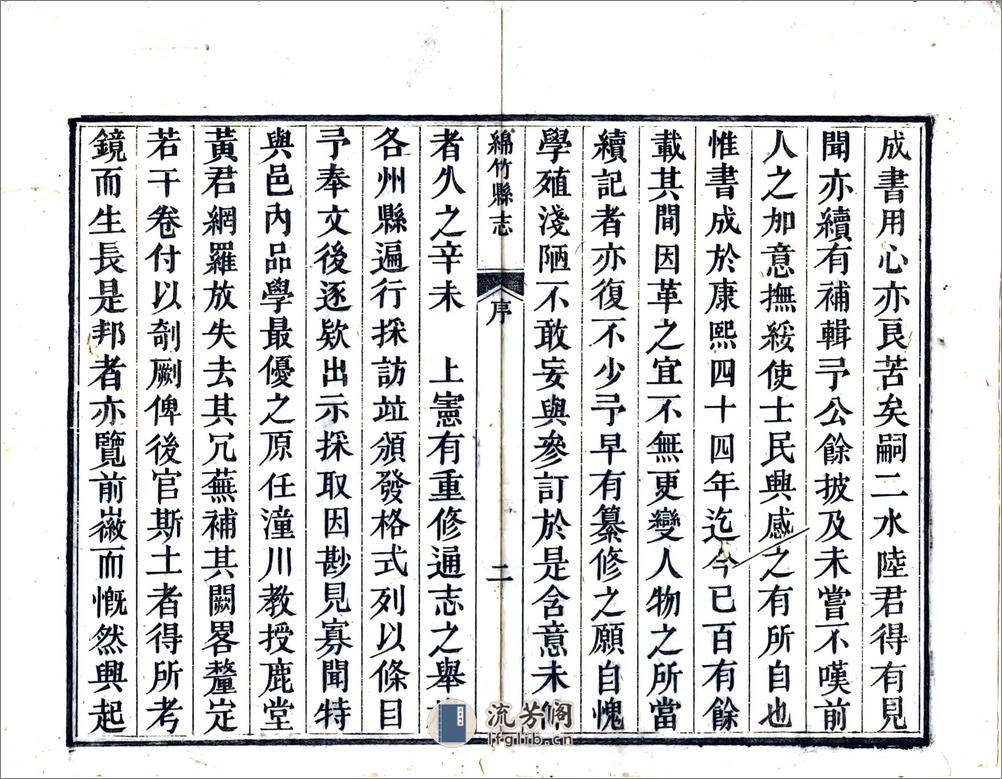 成書用心亦良苦矣嗣二水陸君得有見
聞亦續有補輯予公餘披及未嘗不嘆前
人之加意撫綏使士民興感之有所自也
惟書成於康熙四十四年迄今已百有餘
載其間因革之宜不無更變人物之所當
續記者亦復不少予早有纂修之願自愧
學殖淺陋不敢妄與參訂於是含意未
綿竹縣志
序
二
者久之辛未 上憲有重修通志之舉
各州縣遍行採訪並頒發格式列以條目
予奉文後逐欵出示採取因尠見寡聞特
與邑內品學最優之原任潼川教授鹿堂
黃君網羅放失去其冗蕪補其闕畧釐定
若干卷付以剞劂俾後官斯土者得所考
鏡而生長是邦者亦覽前徽而慨然興起
流芳閣
lfglib.cn